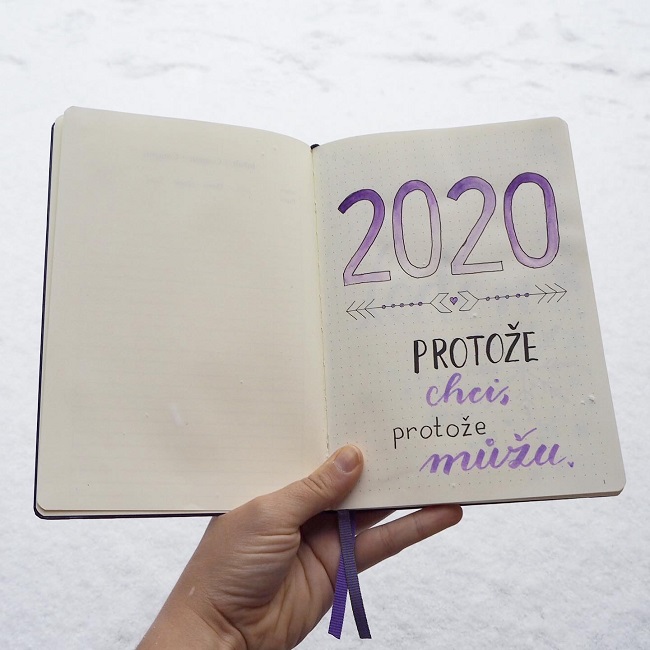 2020
PROTOŽE
chci,
protože
můžu.